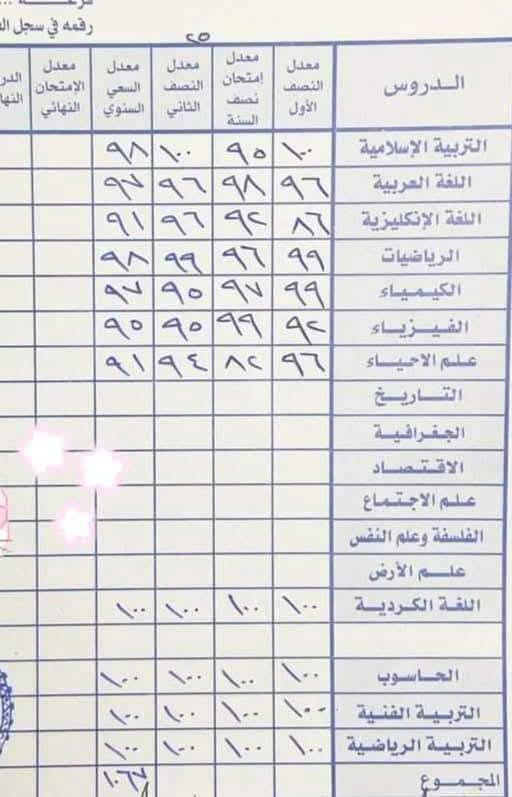 رقمه في سجل
٢٥
الدروس | معدل النصف الأول | معدل إمتحان نصف السنة | معدل النصف الثاني | معدل السعي السنوي | معدل الإمتحان النهائي
التربية الإسلامية | ١٠٠ | ٩٥ | ١٠٠ | ٩٨
اللغة العربية | ٩٦ | ٩٨ | ٩٦ | ٩٧
اللغة الإنكليزية | ٨٦ | ٩٢ | ٩٦ | ٩١
الرياضيات | ٩٩ | ٩٦ | ٩٩ | ٩٨
الكيمياء | ٩٩ | ٩٧ | ٩٥ | ٩٧
الفيزياء | ٩٢ | ٩٩ | ٩٥ | ٩٥
علم الاحياء | ٩٦ | ٨٢ | ٩٤ | ٩١
التاريخ
الجغرافية
الاقتصاد
علم الاجتماع
الفلسفة وعلم النفس
علم الأرض
اللغة الكردية | ١٠٠ | ١٠٠ | ١٠٠ | ١٠٠
الحاسوب | ١٠٠ | ١٠٠ | ١٠٠ | ١٠٠
التربية الفنية | ١٠٠ | ١٠٠ | ١٠٠ | ١٠٠
التربية الرياضية | ١٠٠ | ١٠٠ | ١٠٠ | ١٠٠
المجموع | ١٠٦٧